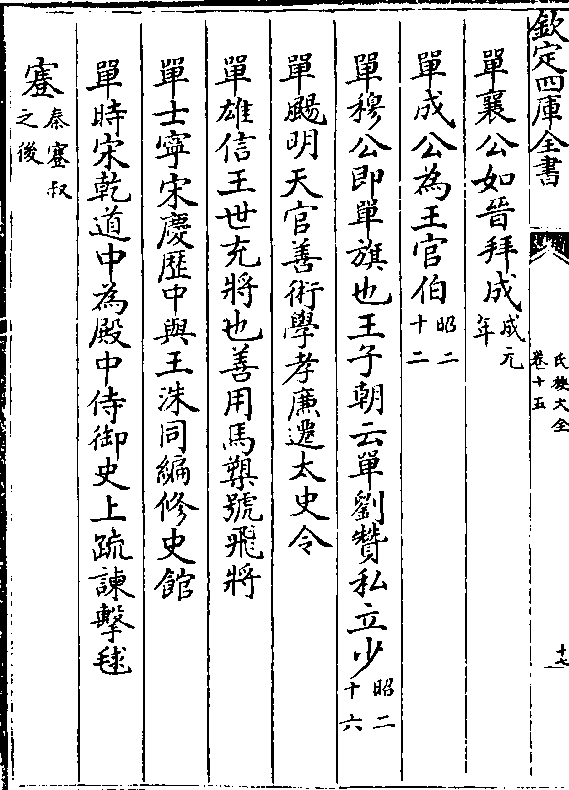 欽定四庫全書
氏族大全
卷十五
十七
單襄公如晉拜成成元年
單成公為王官伯昭二十二
單穆公即單旗也王子朝云單劉贊私立少昭二十六
單颺明天官善術學孝廉遷太史令
單雄信王世充將也善用馬槊號飛將
單士寧宋慶歷中與王洙同編修史館
單時宋乾道中為殿中侍御史上疏諫擊毬
蹇秦蹇叔之後